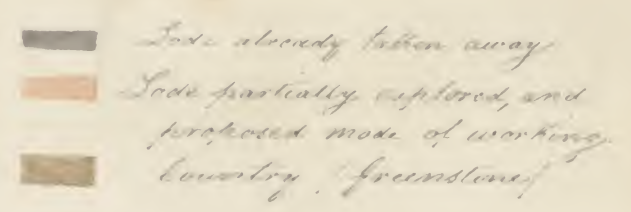 Lode already taken away
Lode partially explored, and
proposed mode of working
Country (Greenstone)